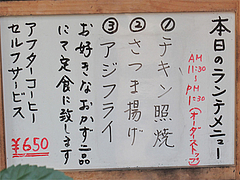 本日のランチメニュー
AM 11:30 〜 PM 1:30
(オーダーストップ)
① チキン照焼
② さつま揚げ
③ アジフライ
お好きなおかず二品
にて定食に致します
アフターコーヒー
セルフサービス
¥650